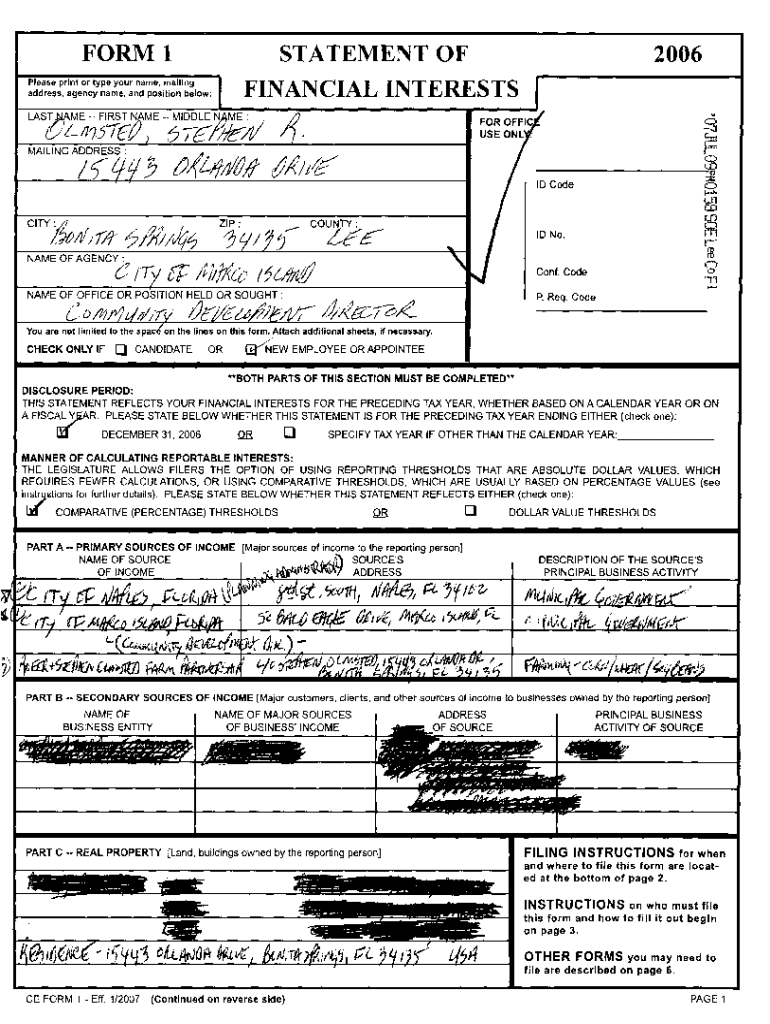 FORM 1 STATEMENT OF 2006
FINANCIAL INTERESTS
Please print or type your name, mailing
address, agency name, and position below:
LAST NAME -- FIRST NAME -- MIDDLE NAME :
OLMSTED, STEPHEN R.
MAILING ADDRESS :
15443 ORLANDA DRIVE
CITY : ZIP : COUNTY :
BONITA SPRINGS 34135 LEE
NAME OF AGENCY :
CITY OF MARCO ISLAND
NAME OF OFFICE OR POSITION HELD OR SOUGHT :
COMMUNITY DEVELOPMENT DIRECTOR
You are not limited to the space on the lines on this form. Attach additional sheets, if necessary.
CHECK ONLY IF CANDIDATE OR NEW EMPLOYEE OR APPOINTEE
FOR OFFICE
USE ONLY
ID Code
ID No.
Conf. Code
P. Req. Code
'07JUL09PM0159SOELeeCoFl
**BOTH PARTS OF THIS SECTION MUST BE COMPLETED**
DISCLOSURE PERIOD:
THIS STATEMENT REFLECTS YOUR FINANCIAL INTERESTS FOR THE PRECEDING TAX YEAR, WHETHER BASED ON A CALENDAR YEAR OR ON
A FISCAL YEAR. PLEASE STATE BELOW WHETHER THIS STATEMENT IS FOR THE PRECEDING TAX YEAR ENDING EITHER (check one):
DECEMBER 31, 2006 OR SPECIFY TAX YEAR IF OTHER THAN THE CALENDAR YEAR:
MANNER OF CALCULATING REPORTABLE INTERESTS:
THE LEGISLATURE ALLOWS FILERS THE OPTION OF USING REPORTING THRESHOLDS THAT ARE ABSOLUTE DOLLAR VALUES, WHICH
REQUIRES FEWER CALCULATIONS, OR USING COMPARATIVE THRESHOLDS, WHICH ARE USUALLY BASED ON PERCENTAGE VALUES (see
instructions for further details). PLEASE STATE BELOW WHETHER THIS STATEMENT REFLECTS EITHER (check one):
COMPARATIVE (PERCENTAGE) THRESHOLDS OR DOLLAR VALUE THRESHOLDS
PART A -- PRIMARY SOURCES OF INCOME [Major sources of income to the reporting person]
NAME OF SOURCE SOURCE'S DESCRIPTION OF THE SOURCE'S
OF INCOME ADDRESS PRINCIPAL BUSINESS ACTIVITY
CITY OF NAPLES, FLORIDA 8th St. SOUTH, NAPLES, FL 34102 MUNICIPAL GOVERNMENT
CITY OF MARCO ISLAND, FLORIDA 50 BALD EAGLE DRIVE, MARCO ISLAND, FL MUNICIPAL GOVERNMENT
-(COMMUNITY DEVELOPMENT DIR.)-
STEPHEN OLMSTED FARM PARTNERSHIP C/O STEPHEN OLMSTED, 15443 ORLANDA DR. FARMING - CORN/WHEAT/SOYBEANS
BONITA SPRINGS, FL 34135
PART B -- SECONDARY SOURCES OF INCOME [Major customers, clients, and other sources of income to businesses owned by the reporting person]
NAME OF NAME OF MAJOR SOURCES ADDRESS PRINCIPAL BUSINESS
BUSINESS ENTITY OF BUSINESS' INCOME OF SOURCE ACTIVITY OF SOURCE
PART C -- REAL PROPERTY [Land, buildings owned by the reporting person]
RESIDENCE - 15443 ORLANDA DRIVE, BONITA SPRINGS, FL 34135 USA
FILING INSTRUCTIONS for when
and where to file this form are locat-
ed at the bottom of page 2.
INSTRUCTIONS on who must file
this form and how to fill it out begin
on page 3.
OTHER FORMS you may need to
file are described on page 6.
CE FORM 1 - Eff. 1/2007 (Continued on reverse side) PAGE 1